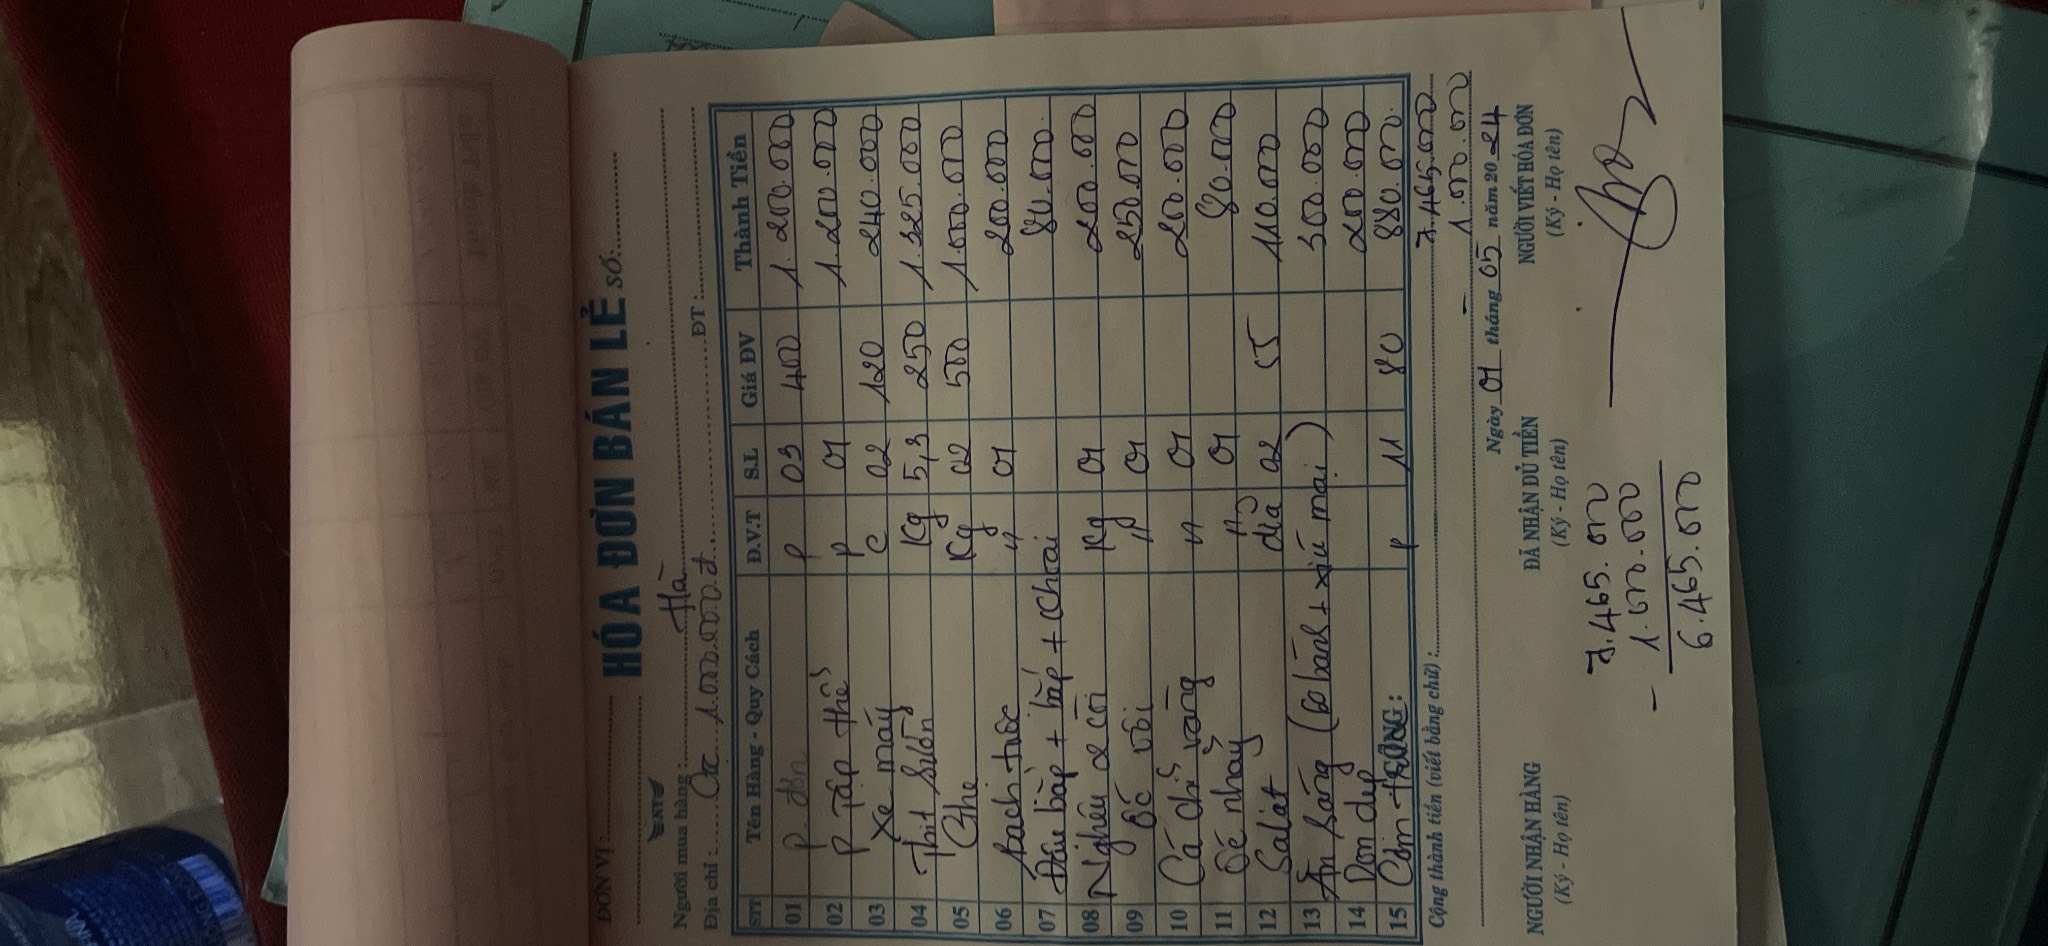 ĐƠN VỊ :
HÓA ĐƠN BÁN LẺ SỐ:
NY
Người mua hàng : Hà
Địa chỉ : Cọc 1.000.000.đ ĐT :
STT Tên Hàng - Quy Cách Đ.V.T S.L Giá ĐV Thành Tiền
01 P. đơn P 03 400 1.200.000
02 P Tập thể P 01 1.200.000
03 Xe máy C 02 120 240.000
04 Thịt sườn Kg 5,3 250 1.325.000
05 Ghẹ Kg 02 500 1.000.000
06 Bạch tuộc " 01 200.000
07 Đậu bắp + bắp + (Khoai 80.000
08 Nghêu 2 cồi Kg 01 200.000
09 Ốc vôi " 01 250.000
10 Cá chỉ vàng " 01 200.000
11 Ốc nhảy " 01 80.000
12 Salát dĩa 02 55 110.000
13 Ăn sáng (20 bánh + xíu mại) 300.000
14 Dọn dẹp 200.000
15 Cơm CỘNG: P 11 80 880.000
Cộng thành tiền (viết bằng chữ) : 7.465.000
- 1.000.000
Ngày 01 tháng 05 năm 2024
NGƯỜI NHẬN HÀNG ĐÃ NHẬN ĐỦ TIỀN NGƯỜI VIẾT HÓA ĐƠN
(Ký - Họ tên) (Ký - Họ tên) (Ký - Họ tên)
7.465.000
- 1.000.000
6.465.000